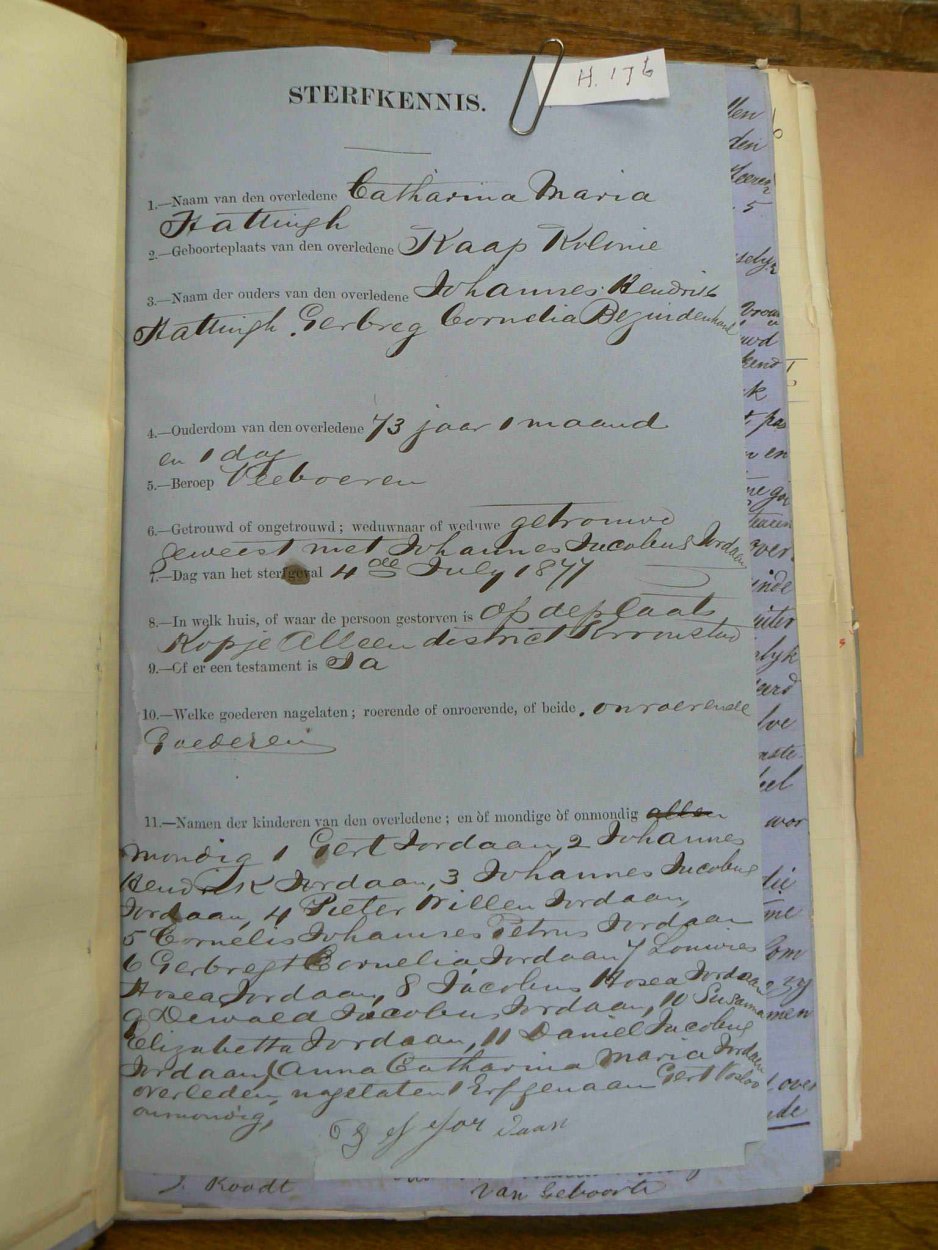 H. 176
STERFKENNIS.
1.—Naam van den overledene Catharina Maria
Hattingh
2.—Geboorteplaats van den overledene Kaap Kolonie
3.—Naam der ouders van den overledene Johannes Hendrik
Hattingh Gerbreg Cornelia Bezuidenhoud
4.—Ouderdom van den overledene 73 jaar 1 maand
en 1 dag
5.—Beroep Veeboeren
6.—Getrouwd of ongetrouwd; weduwnaar of weduwe getrouwd
geweest met Johannes Jacobus Jordaan
7.—Dag van het sterfgeval 4de July 1877
8.—In welk huis, of waar de persoon gestorven is op de plaats
Kopje Alleen district Kroonstad
9.—Of er een testament is Ja
10.—Welke goederen nagelaten; roerende of onroerende, of beide. onroerende
Goederen
11.—Namen der kinderen van den overledene; en òf mondige òf onmondig allen
mondig 1 Gert Jordaan, 2 Johannes
Hendrik Jordaan, 3 Johannes Jacobus
Jordaan, 4 Pieter Willem Jordaan,
5 Cornelis Johannes Petrus Jordaan
6 Gerbregt Cornelia Jordaan 7 Louwies
Hosea Jordaan, 8 Jacobus Hosea Jordaan
9 Dewald Jacobus Jordaan, 10 Susanna
Elizabetta Jordaan, 11 Daniel Jacobus
Jordaan, (Anna Catharina Maria Jordaan
overleden, nagelaten 1 Erfgenaam Gert Vosloo
onmondig,
J. Roodt
van Geboorte